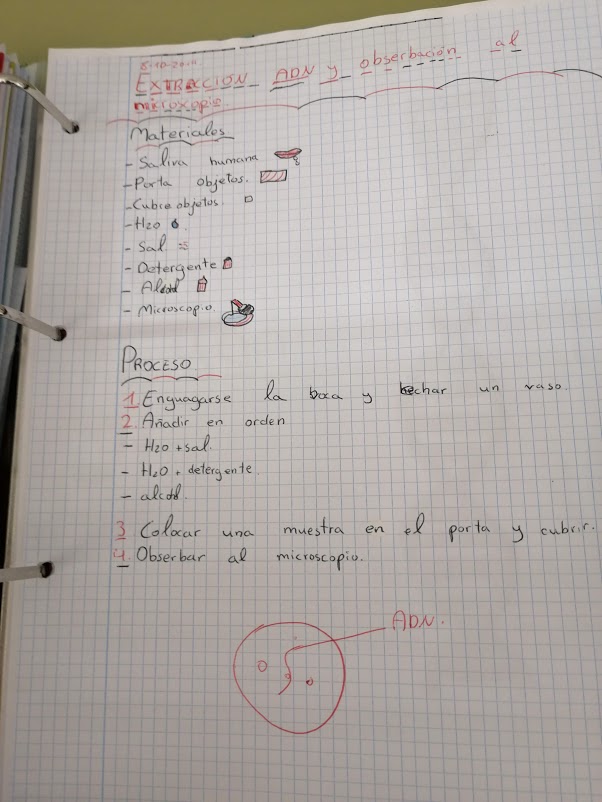 EXTRACIÓN ADN y obserbación al
microscopio.
Materiales
- Saliva humana
- Porta objetos.
- Cubre objetos.
- H2O
- Sal
- Detergente
- Alcohol
- Microscopio.
PROCESO
1. Enguagarse la boca y echar un vaso.
2. Añadir en orden
- H2O + sal.
- H2O + detergente.
- alcohol.
3 Colocar una muestra en el porta y cubrir.
4. Obserbar al microscopio.
ADN.